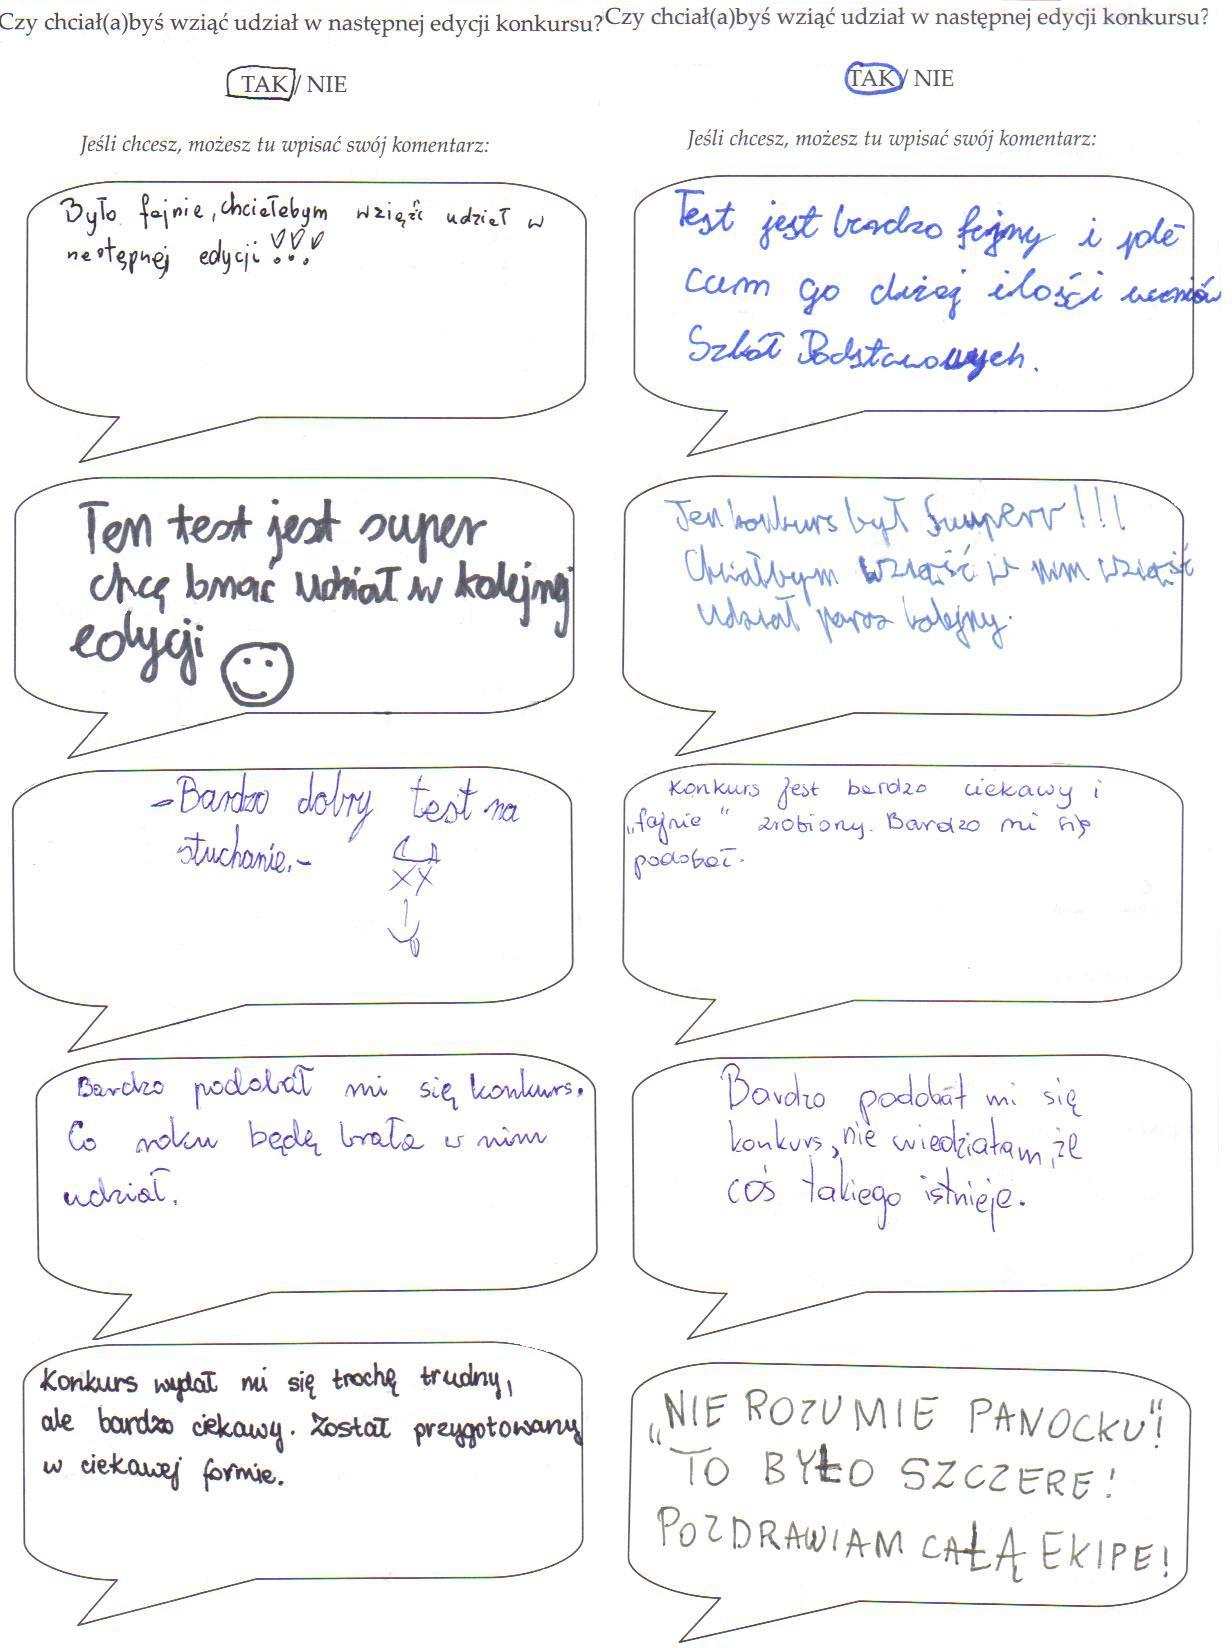 Czy chciał(a)byś wziąć udział w następnej edycji konkursu?
TAK / NIE
Jeśli chcesz, możesz tu wpisać swój komentarz:
Było fajnie, chciełebym wziąść udzieł w
nestępnej edycji!!!
Ten test jest super
chcę brnać udział w kolejnej
edycji
-Bardzo dobry test na
słuchanie.-
Bardzo podobał mi się konkurs.
Co roku będę brała w nim
udział.
Konkurs wydał mi się trochę trudny,
ale bardzo ciekawy. Został przygotowany
w ciekawej formie.
Czy chciał(a)byś wziąć udział w następnej edycji konkursu?
TAK / NIE
Jeśli chcesz, możesz tu wpisać swój komentarz:
Test jest bardzo fajny i pole
cam go dużej ilości uczniów
Szkół Podstawowych.
Ten konkurs był Suuperr!!!
Chciałbym wziąść w nim wziąść
udział poraz kolejny.
Konkurs jest bardzo ciekawy i
„fajnie" zrobiony. Bardzo mi się
podobał.
Bardzo podobał mi się
konkurs, nie wiedziałam, że
coś takiego istnieje.
„NIE ROZUMIE PANOCKU"!
TO BYŁO SZCZERE!
POZDRAWIAM CAŁĄ EKIPE!